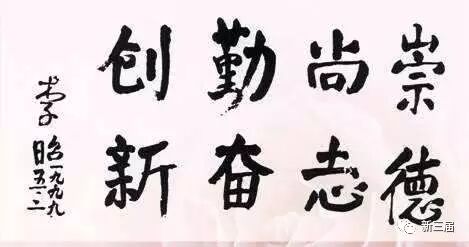 崇德
尚志
勤奋
创新
李昭
一九九九
五·二
新三届